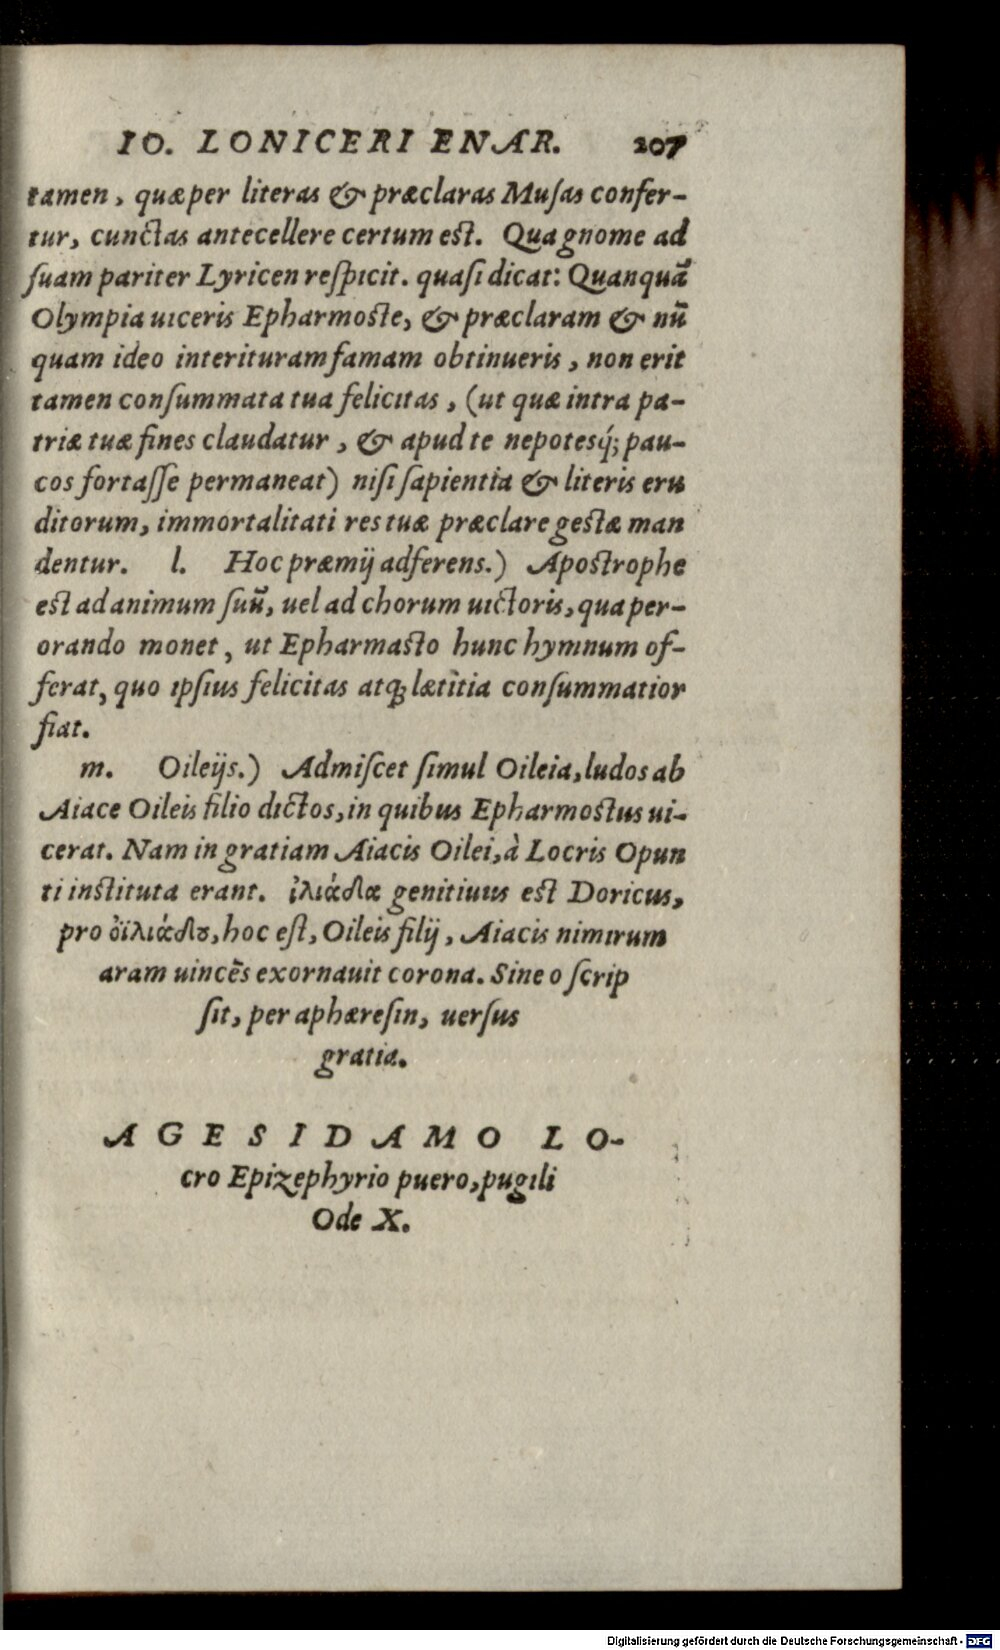 IO. LONICERI ENAR. 207
tamen, quæ per literas & præclaras Muſas confer-
tur, cunctas antecellere certum eſt. Qua gnome ad
ſuam pariter Lyricen reſpicit. quaſi dicat: Quanquā
Olympia uiceris Epharmoſte, & præclaram & nū
quam ideo interituram famam obtinueris, non erit
tamen conſummata tua felicitas, (ut quæ intra pa-
triæ tuæ fines claudatur, & apud te nepotesq́; pau-
cos fortaſſe permaneat) niſi ſapientia & literis eru
ditorum, immortalitati res tuæ præclare geſtæ man
dentur. l. Hoc præmij adferens.) Apoſtrophe
eſt ad animum ſuū, uel ad chorum uictoris, qua per-
orando monet, ut Epharmaſto hunc hymnum of-
ferat, quo ipſius felicitas atq; lætitia conſummatior
fiat.
m. Oileijs.) Admiſcet ſimul Oileia, ludos ab
Aiace Oileis filio dictos, in quibus Epharmoſtus ui-
cerat. Nam in gratiam Aiacis Oilei, à Locris Opun
ti inſtituta erant. ἰλιάδα genitiuus eſt Doricus,
pro ὀϊλιάδȣ, hoc eſt, Oileis filij, Aiacis nimirum
aram uincēs exornauit corona. Sine o ſcrip
ſit, per aphæreſin, uerſus
gratia.
AGESIDAMO LO-
cro Epizephyrio puero, pugili
Ode X.
Digitalisierung gefördert durch die Deutsche Forschungsgemeinschaft - DFG